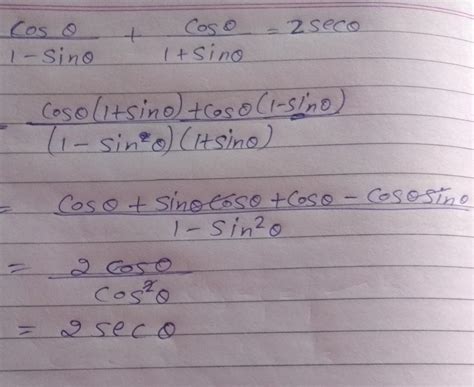 cosθ/1-sinθ + cosθ/1+sinθ = 2secθ
= cosθ(1+sinθ)+cosθ(1-sinθ)/(1-sin²θ)(1+sinθ)
= cosθ+sinθcosθ+cosθ-cosθsinθ/1-sin²θ
= 2cosθ/cos²θ
= 2secθ